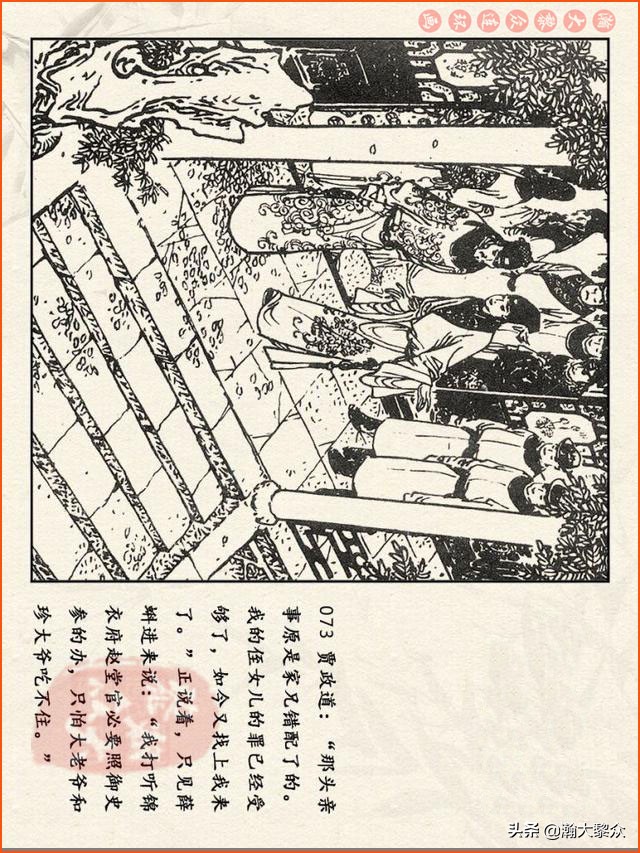 瀚大黎众连环画
073 贾政道：“那头亲
事原是家兄错配了的。
我的侄女儿的罪已经受
够了，如今又找上我来
了。”正说着，只见薛
蝌进来说：“我打听锦
衣府赵堂官必要照御史
参的办，只怕大老爷和
珍大爷吃不住。”
头条 @瀚大黎众